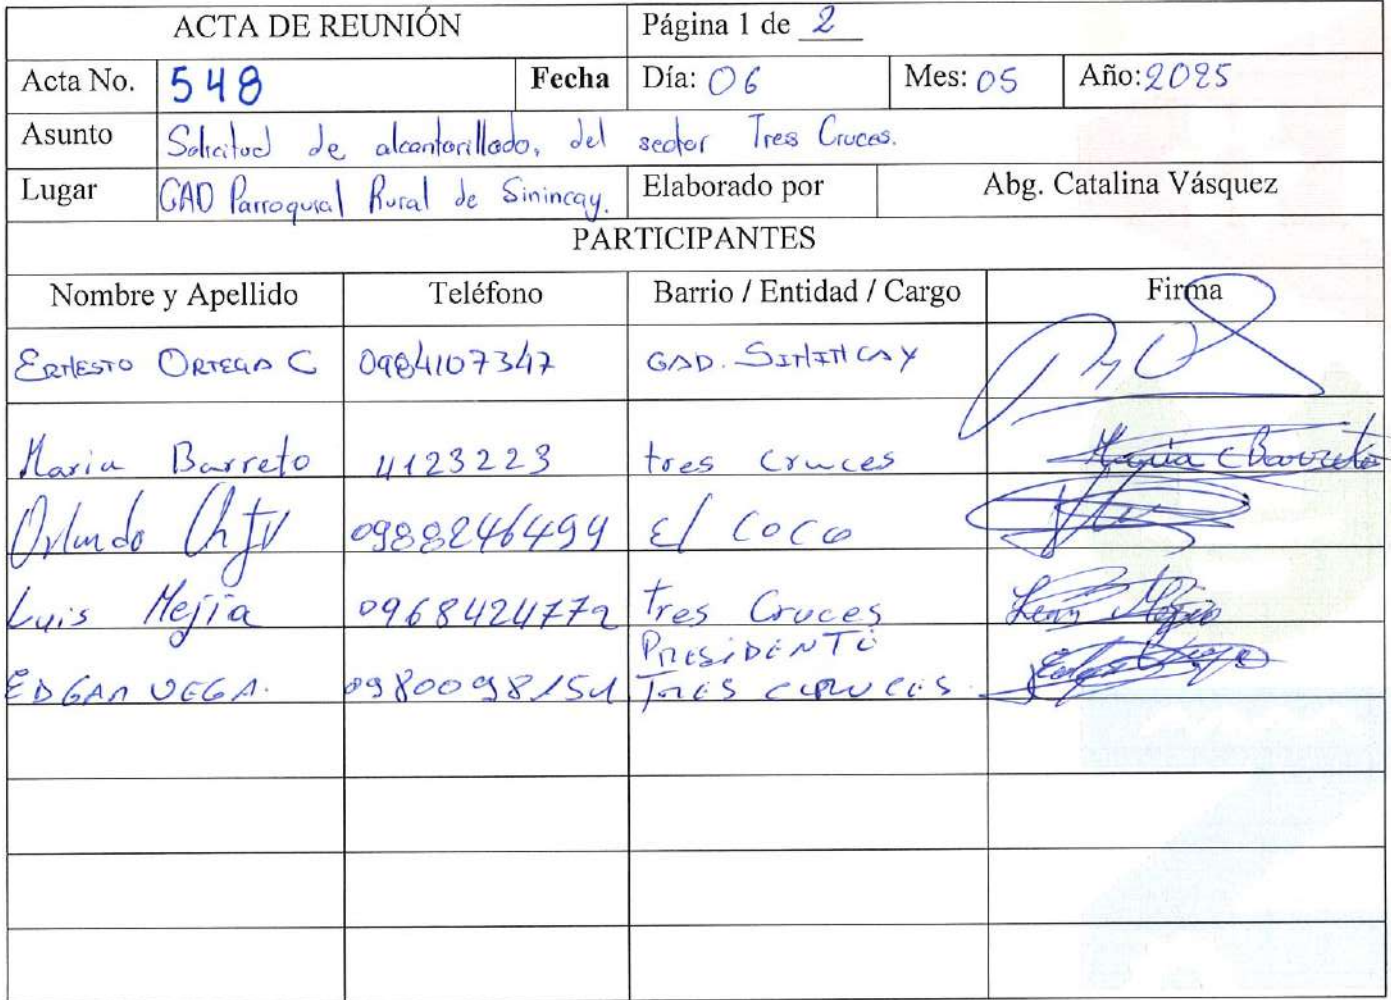 ACTA DE REUNIÓN Página 1 de 2
Acta No. 548 Fecha Día: 06 Mes: 05 Año: 2025
Asunto Solicitud de alcantarillado, del sector Tres Cruces.
Lugar GAD Parroquial Rural de Sinincay. Elaborado por Abg. Catalina Vásquez
PARTICIPANTES
Nombre y Apellido Teléfono Barrio / Entidad / Cargo Firma
ERNESTO ORTEGA C 0984107347 GAD. SININCAY
Maria Barreto 4123223 tres cruces Maria C Barreto
Orlando 0988246494 El Coco
Luis Mejía 0968424772 tres Cruces
PRESIDENTE
EDGAR VEGA. 0980098151 TRES CRUCES